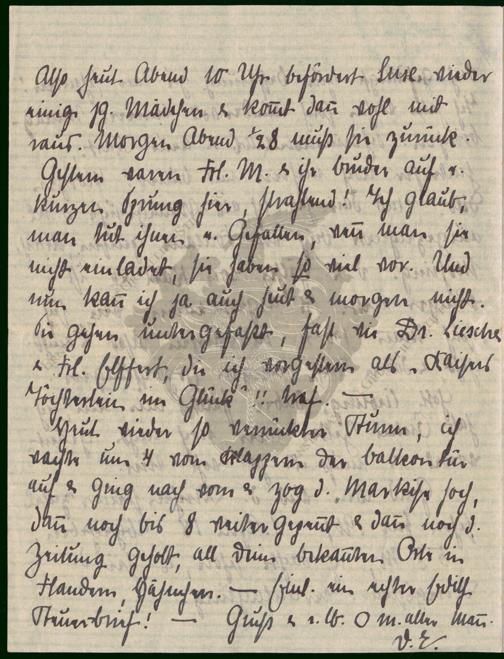 Also heut Abend 10 Uhr befördert Luise wieder
einige jg. Mädchen & kom̄t dan̄ wohl mit
raus. Morgen Abend ½8 muß sie zurück.
Gestern waren Frl. M. & ihr Bruder auf e.
kurzen Sprung hier, strahlend! Ich glaub,
man tut ihnen e. Gefallen, wen̄ man sie
nicht einladet, sie haben so viel vor. Und
nun kan̄ ich ja auch heut & morgen nicht.
Sie gehen untergefaßt, fast wie Dr. Liesche
& Frl. Effert, die ich vorgestern als „Kaisers
Töchterlein im Glück"!! traf. —
Heut wieder so verrückter Sturm, ich
wachte um 4 vom Klappern der Balkontür
auf & ging nach vorn & zog d. Markise hoch,
dan̄ noch bis 8 weitergepen̄t & dan̄ noch d.
Zeitung geholt, all dem bekan̄ten Orte in
Flandern, Fähnchen. — Einl. ein echter Edith
Steuerbrief! — Gruß & e. lb. O m. alter Man̄.
D. E.